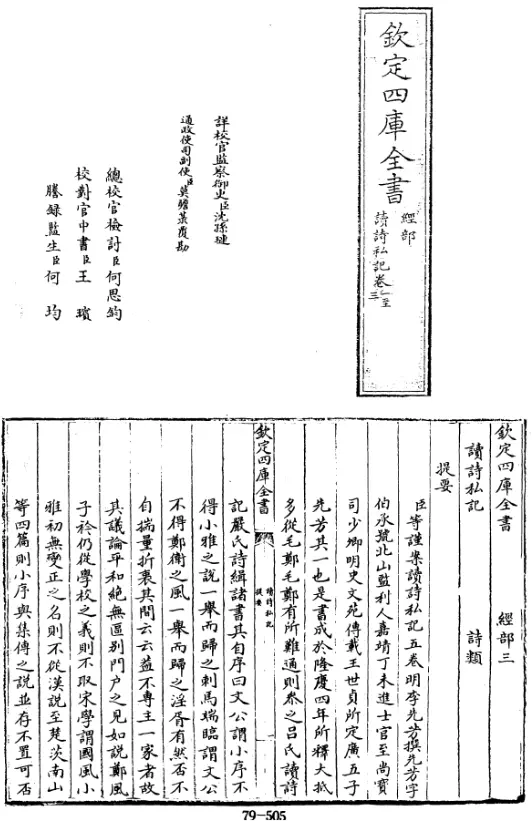 欽定四庫全書
經部
讀詩私記卷一至三
詳校官監察御史臣沈孫璉
通政使司副使臣莫瞻菉覆勘
總校官檢討臣何思鈞
校對官中書臣王璸
謄錄監生臣何均
欽定四庫全書 經部三
讀詩私記 詩類
提要
臣等謹案讀詩私記五卷明李先芳撰先芳字
伯承號北山監利人嘉靖丁未進士官至尚寶
司少卿明史文苑傳載王世貞所定廣五子
先芳其一也是書成於隆慶四年所釋大抵
多從毛鄭毛鄭有所難通則參之呂氏讀詩
欽定四庫全書
讀詩私記
提要
記嚴氏詩緝諸書其自序曰文公謂小序不
得小雅之說一舉而歸之刺馬端臨謂文公
不得鄭衛之風一舉而歸之淫胥有然否不
自揣量折衷其間云云蓋不專主一家者故
其議論平和絕無區別門户之見如說鄭風
子衿仍從學校之義則不取宋學謂國風小
雅初無變正之名則不從漢說至楚茨南山
等四篇則小序與集傳之說並存不置可否
79-505